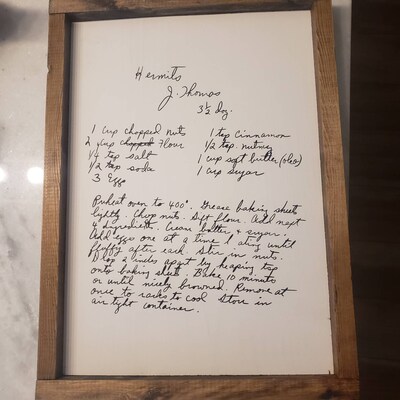 Hermits
J. Thomas
3 1/2 doz.
1 cup chopped nuts
2 cup chopped flour
1/4 tsp salt
1/2 tsp soda
3 eggs
1 tsp cinnamon
1/2 tsp nutmeg
1 cup soft butter (oleo)
1 cup sugar
Preheat oven to 400°. Grease baking sheet
lightly. Chop nuts. Sift flour. Add next
4 ingredients. Cream butter & sugar.
Add eggs one at a time & stir until
fluffy after each. Stir in nuts.
Drop 2 inches apart by heaping tsp
onto baking sheets. Bake 10 minutes
or until nicely browned. Remove at
once to racks to cool. Store in
air tight container.